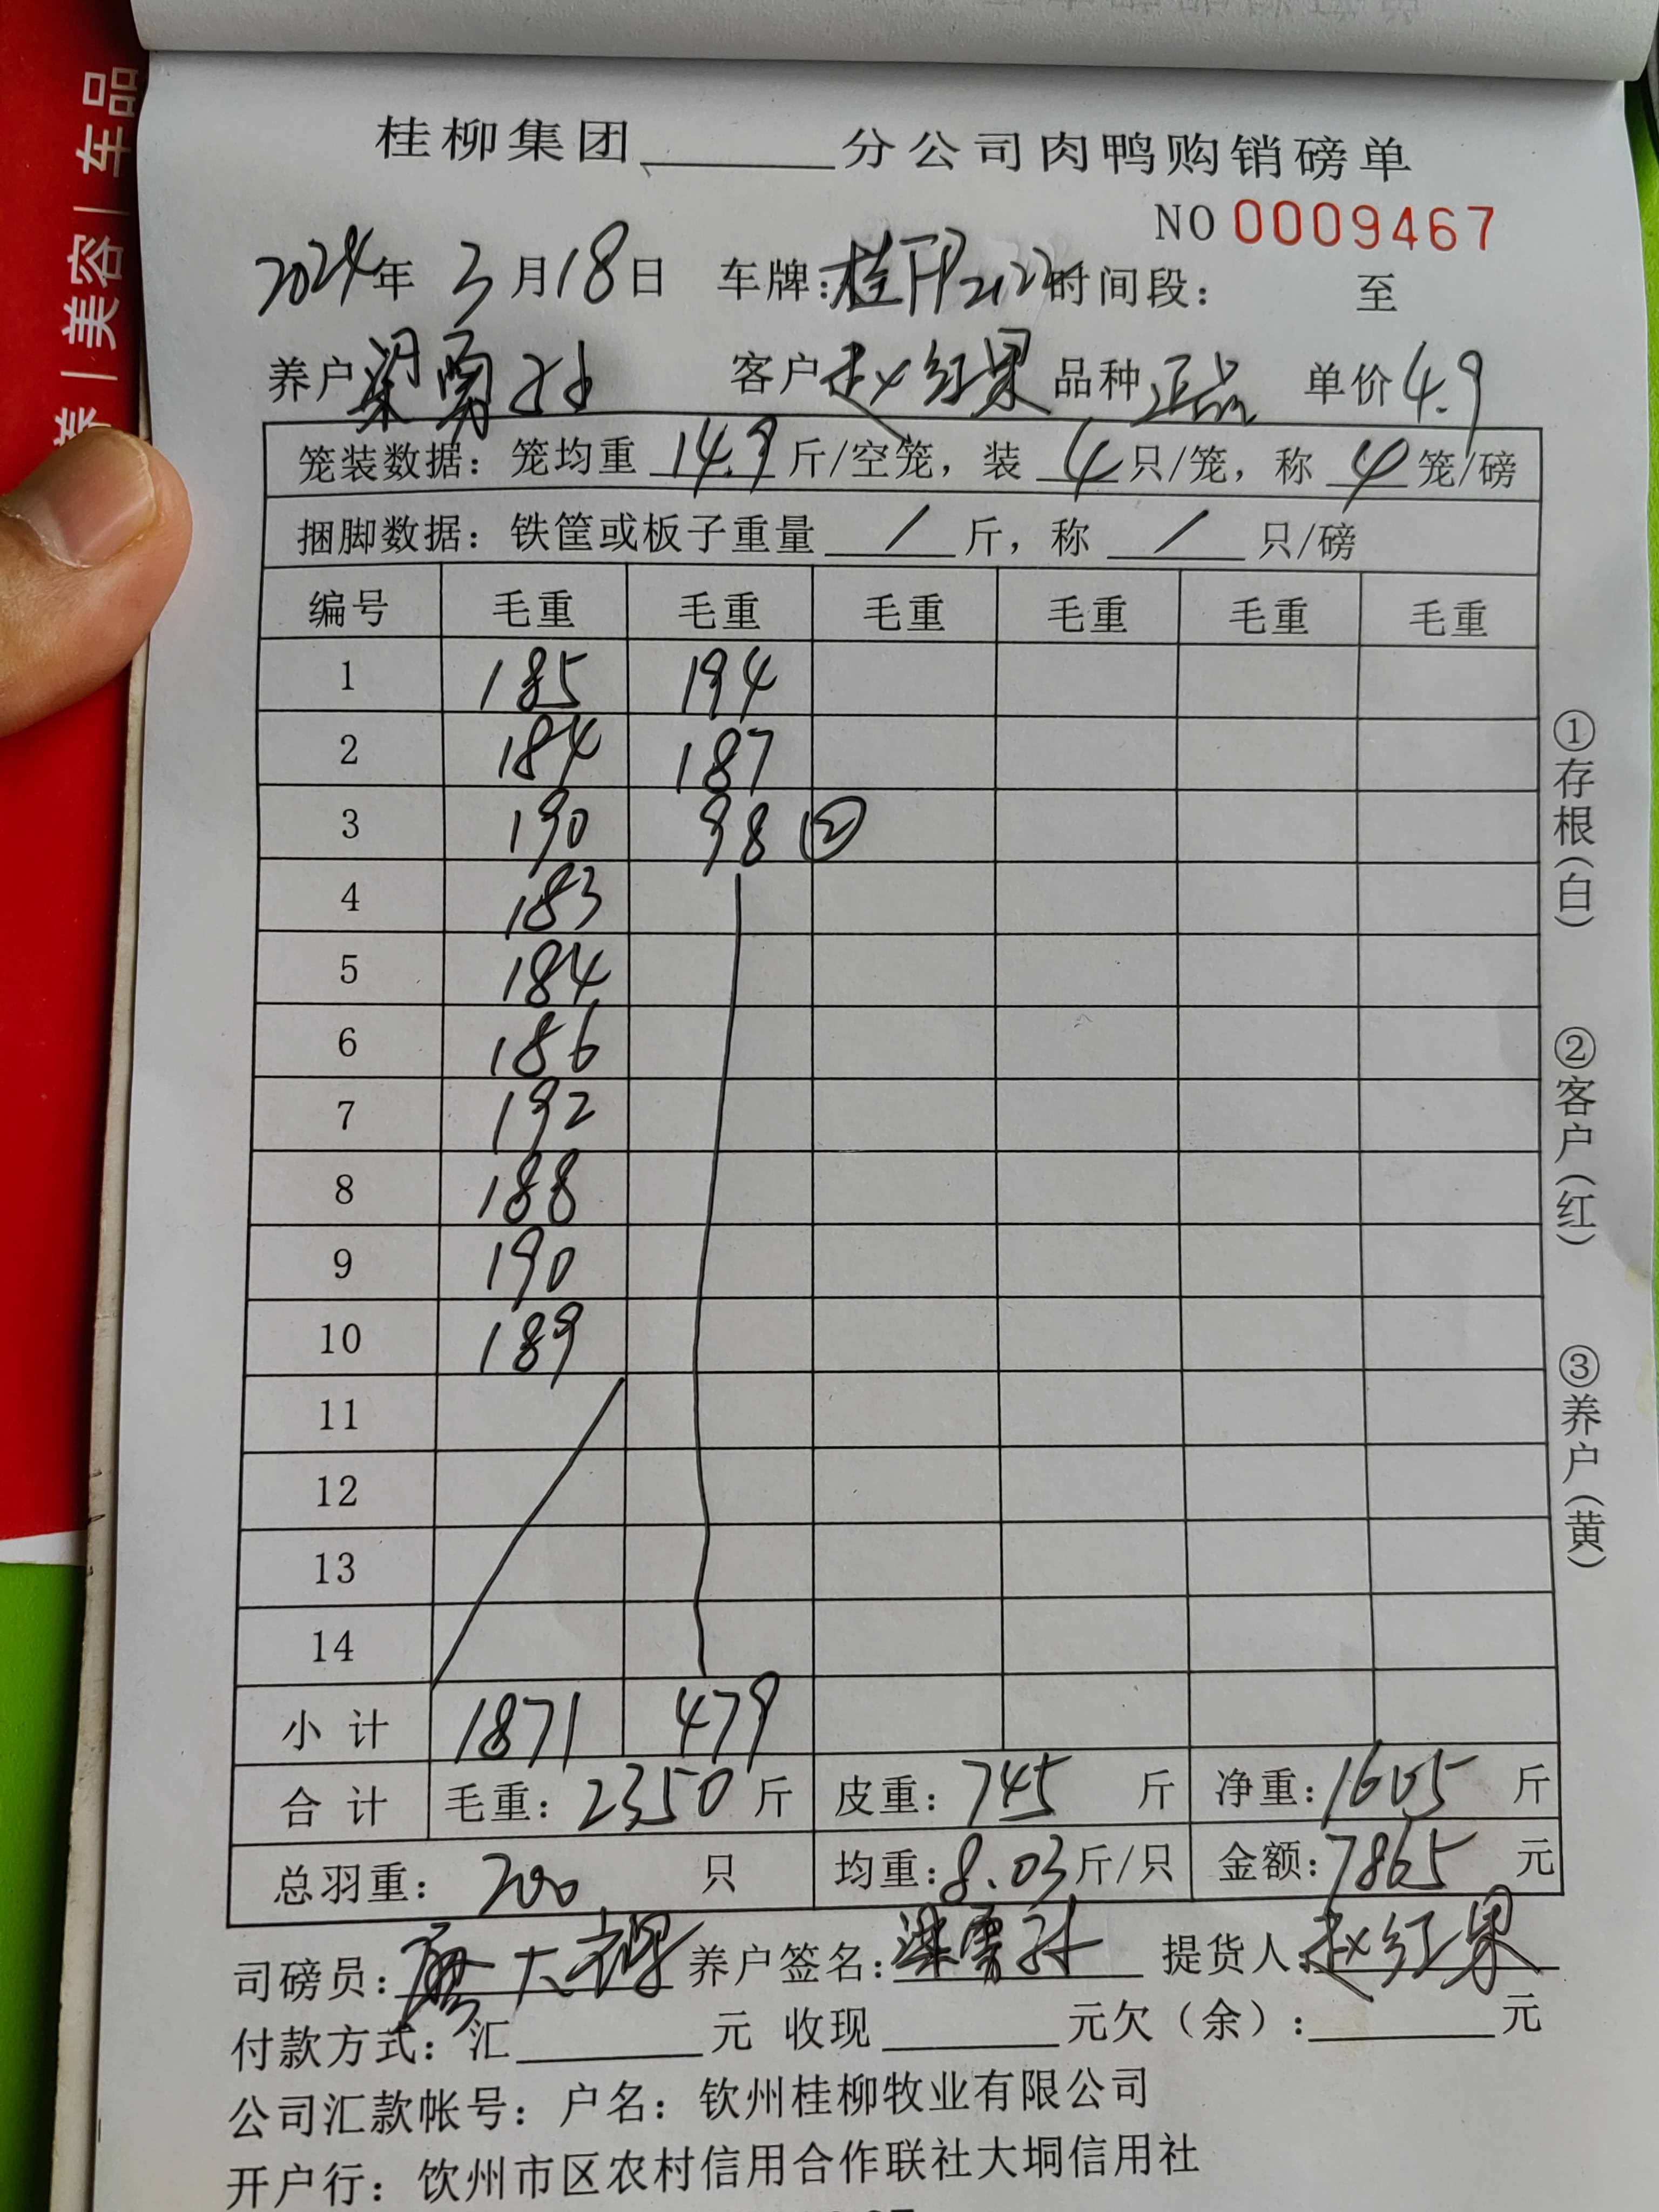 桂柳集团______分公司肉鸭购销磅单
NO 0009467
2024年 3月18日 车牌:桂 时间段: 至
养户 梁勇 客户 赵红果 品种 正品 单价 4.9
笼装数据: 笼均重 14.9 斤/空笼, 装 4 只/笼, 称 4 笼/磅
捆脚数据: 铁筐或板子重量 / 斤, 称 / 只/磅
编号 毛重 毛重 毛重 毛重 毛重 毛重
1 185 194
2 184 187
3 190 98 ②
4 183
5 184
6 186
7 192
8 188
9 190
10 189
11
12
13
14
小计 1871 479
合计 毛重: 2350 斤 皮重: 745 斤 净重: 1605 斤
总羽重: 200 只 均重: 8.03 斤/只 金额: 7865 元
司磅员: 大 养户签名: 梁勇 提货人: 赵红果
付款方式: 汇______元 收现______元欠(余):______元
公司汇款帐号: 户名: 钦州桂柳牧业有限公司
开户行: 钦州市区农村信用合作联社大垌信用社
①存根(白)
②客户(红)
③养户(黄)
美容|车品